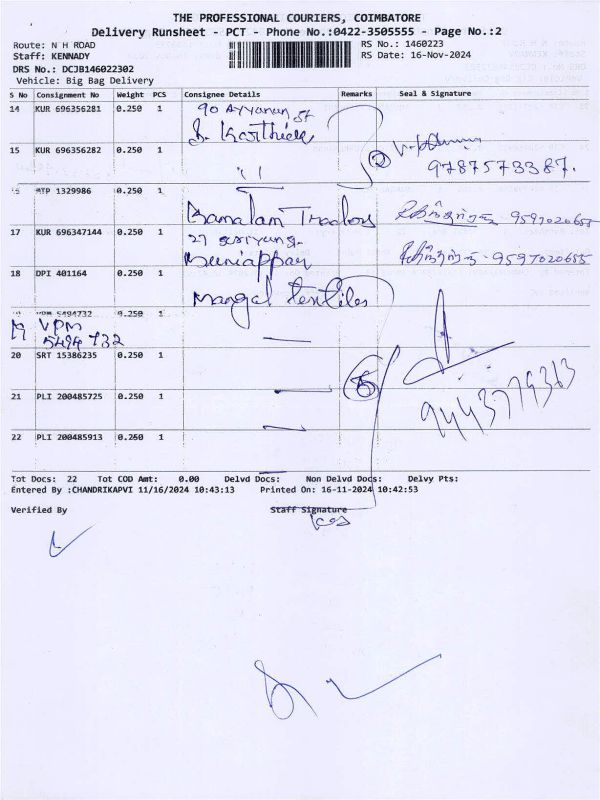 THE PROFESSIONAL COURIERS, COIMBATORE
Delivery Runsheet - PCT - Phone No.:0422-3505555 - Page No.:2
Route: N H ROAD
RS No.: 1460223
Staff: KENNADY
RS Date: 16-Nov-2024
DRS No.: DCJB146022302
Vehicle: Big Bag Delivery
S No Consignment No Weight PCS Consignee Details Remarks Seal & Signature
14 KUR 696356281 0.250 1 90 Ayyanan St
S. Karthick
15 KUR 696356282 0.250 1 " 2
9787573387.
MTP 1329986 0.250 1 Kamalam Traders 9597020655
17 KUR 696347144 0.250 1 27
Muniappan 9597020655
18 DPI 401164 0.250 1 Mangal Textiles
VPM 5494732 0.250 1
19 VPM
5494732
20 SRT 15386235 0.250 1 5
21 PLI 200485725 0.250 1 9443779363
22 PLI 200485913 0.250 1
Tot Docs: 22 Tot COD Amt: 0.00 Delvd Docs: Non Delvd Docs: Delvy Pts:
Entered By :CHANDRIKAPVI 11/16/2024 10:43:13 Printed On: 16-11-2024 10:42:53
Verified By Staff Signature